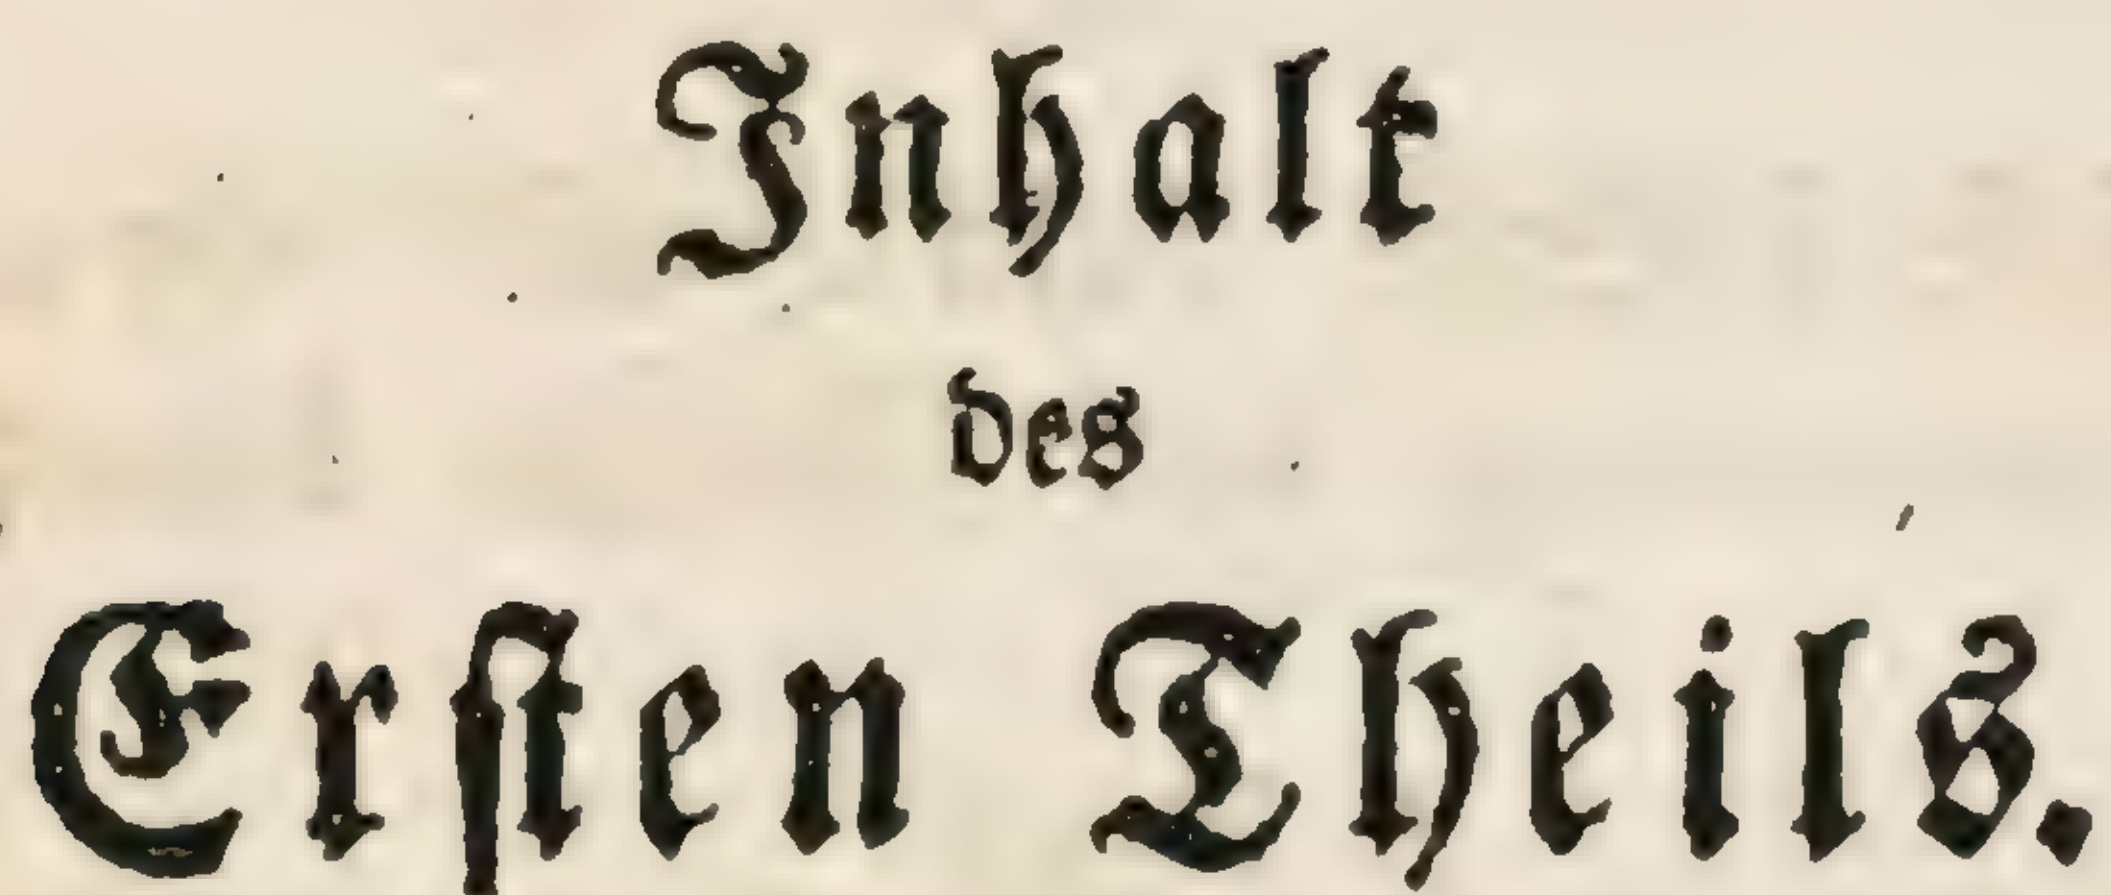 Inhalt
des
Erſten Theils.